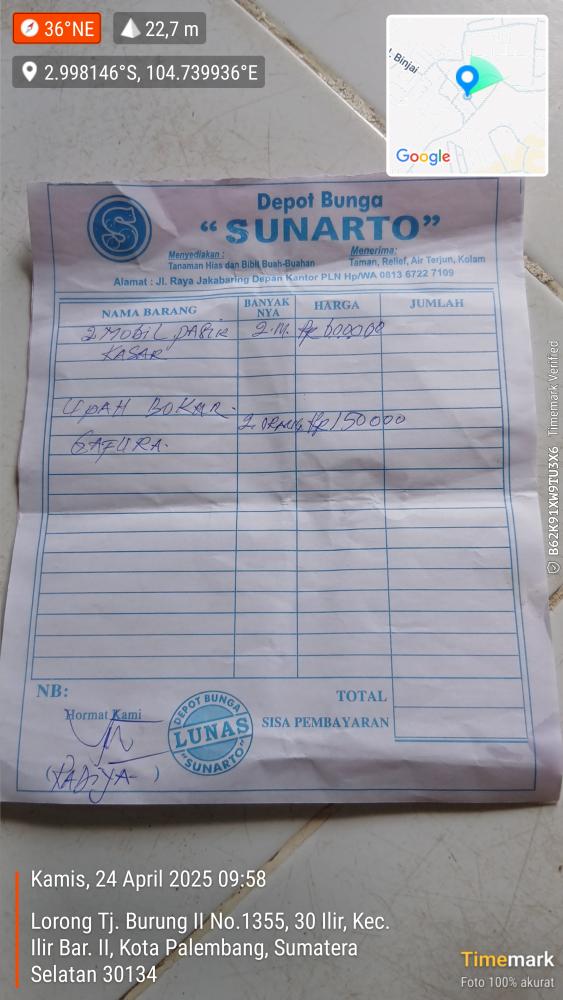 36°NE
22,7 m
2.998146°S, 104.739936°E
l. Binjai
Google
Depot Bunga
"SUNARTO"
S
Menyediakan :
Tanaman Hias dan Bibit Buah-Buahan
Menerima:
Taman, Relief, Air Terjun, Kolam
Alamat : Jl. Raya Jakabaring Depan Kantor PLN Hp/WA 0813 6722 7109
NAMA BARANG BANYAK NYA HARGA JUMLAH
2 MOBIL PASIR 2.M. Rp
KASAR
UPAH BOKAR.
2 ORANG Rp 150000
GAFURA.
NB:
Hormat Kami
DEPOT BUNGA
LUNAS
"SUNARTO"
TOTAL
SISA PEMBAYARAN
( )
B62K91XW9TU3X6 Timemark Verified
Kamis, 24 April 2025 09:58
Lorong Tj. Burung II No.1355, 30 Ilir, Kec.
Ilir Bar. II, Kota Palembang, Sumatera
Selatan 30134
Timemark
Foto 100% akurat